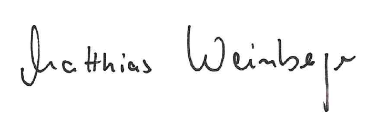 Matthias Weinberger